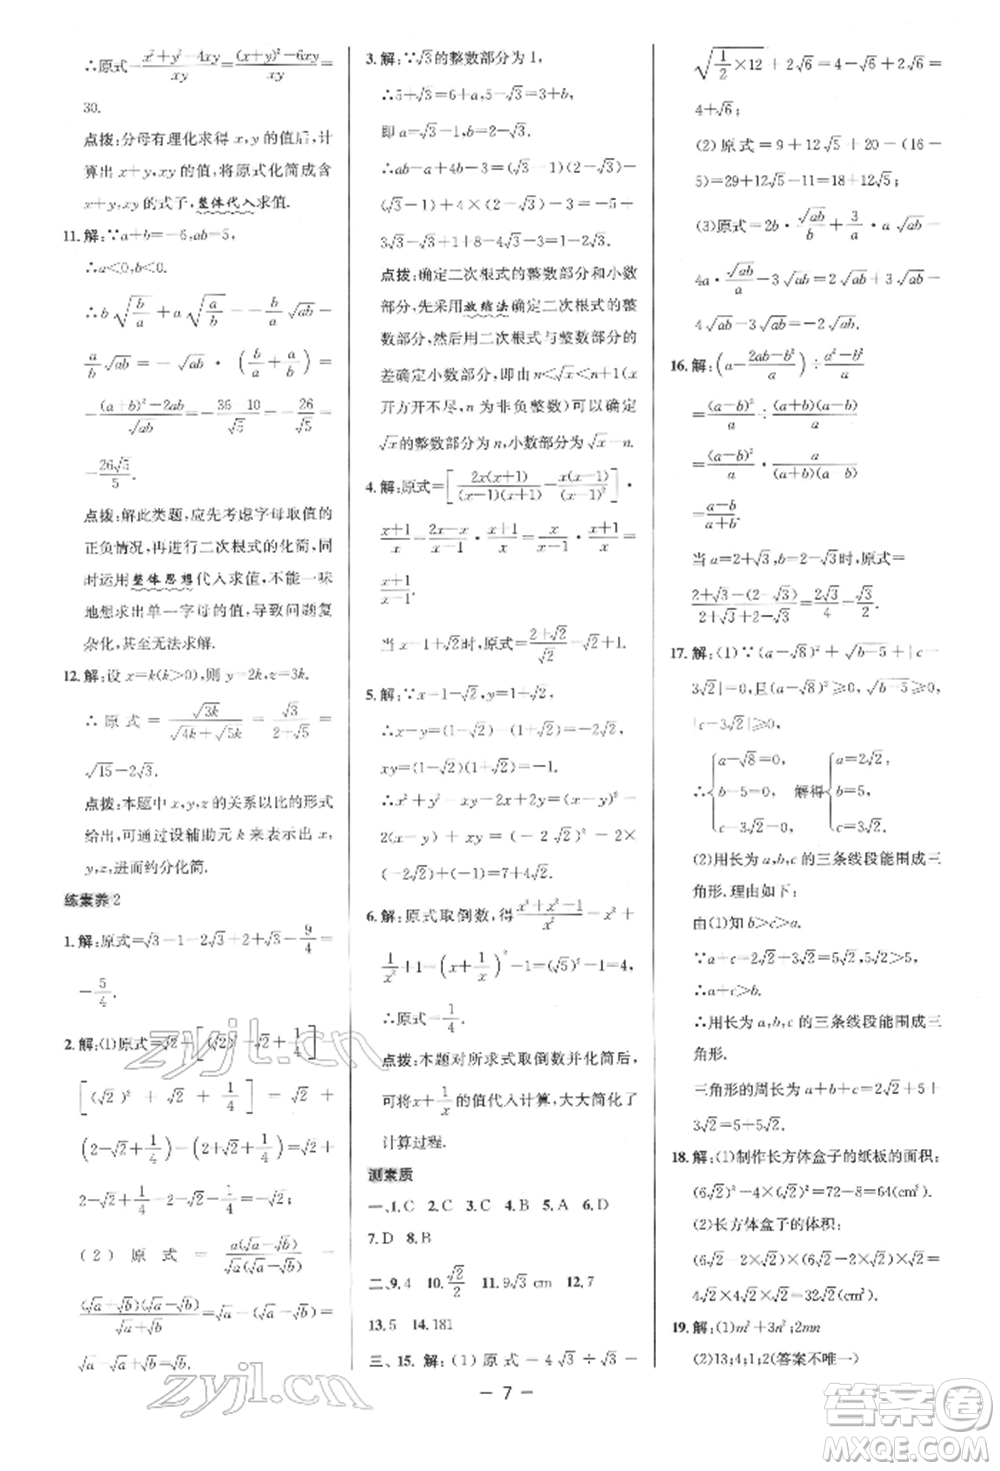 ∴原式=\frac{x²+y²-4xy}{xy}=\frac{(x+y)²-6xy}{xy}=
30.
点拨:分母有理化求得 x,y 的值后,计
算出 x+y,xy 的值,将原式化简成含
x+y,xy 的式子,整体代入求值.
11.解:∵a+b=-6,ab=5,
∴a<0,b<0.
∴b\sqrt{\frac{b}{a}}+a\sqrt{\frac{a}{b}}=-\frac{b}{a}\sqrt{ab}-
\frac{a}{b}\sqrt{ab}=-\sqrt{ab}·(\frac{b}{a}+\frac{a}{b})=
-\frac{(a+b)²-2ab}{\sqrt{ab}}=-\frac{36-10}{\sqrt{5}}=
-\frac{26\sqrt{5}}{5}.
点拨:解此类题,应先考虑字母取值的
正负情况,再进行二次根式的化简,同
时运用整体思想代入求值,不能一味
地想求出单一字母的值,导致问题复
杂化,甚至无法求解.
12.解:设 x=k(k>0),则 y=2k,z=3k.
∴原式=\frac{\sqrt{3k}}{\sqrt{4k}+\sqrt{5k}}=\frac{\sqrt{3}}{2+\sqrt{5}}=
\sqrt{15}-2\sqrt{3}.
点拨:本题中 x,y,z 的关系以比的形式
给出,可通过设辅助元 k 来表示出 x,
y,z,进而约分化简.
练素养 2
1.解:原式=\sqrt{3}-1-2\sqrt{3}+2+\sqrt{3}-\frac{9}{4}=
-\frac{5}{4}.
2.解:(1)原式=
(2)原式=\frac{a(\sqrt{a}-\sqrt{b})}{\sqrt{a}(\sqrt{a}-\sqrt{b})}-
\frac{(\sqrt{a}+\sqrt{b})(\sqrt{a}-\sqrt{b})}{\sqrt{a}+\sqrt{b}}=\sqrt{a}-(\sqrt{a}-\sqrt{b})
=\sqrt{a}-\sqrt{a}+\sqrt{b}=\sqrt{b}.
3.解:∵\sqrt{3}的整数部分为 1,
∴5+\sqrt{3}=6+a,5-\sqrt{3}=3+b,
即 a=\sqrt{3}-1,b=2-\sqrt{3}.
∴ab-a+4b-3=(\sqrt{3}-1)(2-
\sqrt{3})-(\sqrt{3}-1)+4(2-\sqrt{3})-3=
3\sqrt{3}-5-\sqrt{3}+1+8-4\sqrt{3}-3=1-2\sqrt{3}.
点拨:确定二次根式的整数部分和小数
部分,先采用放缩法确定二次根式的整
数部分,然后用二次根式与整数部分的
差确定小数部分,即由 n<\sqrt{x}<n+1(x
开方开不尽,n 为非负整数)可以确定
\sqrt{x}的整数部分为 n,小数部分为\sqrt{x}-n.
4.解:原式=[\frac{2x(x+1)}{(x-1)(x+1)}-\frac{x(x-1)}{(x-1)²}]·
\frac{x+1}{x}=\frac{2x-x}{x-1}·\frac{x+1}{x}=\frac{x}{x-1}·\frac{x+1}{x}=
\frac{x+1}{x-1}.
当 x=1+\sqrt{2}时,原式=\frac{2+\sqrt{2}}{\sqrt{2}}=\sqrt{2}+1.
5.解:∵x=1-\sqrt{2},y=1+\sqrt{2},
∴x-y=(1-\sqrt{2})-(1+\sqrt{2})=-2\sqrt{2},
xy=(1-\sqrt{2})(1+\sqrt{2})=-1.
∴x²+y²-xy-2x+2y=(x-y)²-
2(x-y)+xy=(-2\sqrt{2})²-2×
(-2\sqrt{2})+(-1)=7+4\sqrt{2}.
6.解:原式取倒数,得\frac{x⁴+x²+1}{x²}=x²+
\frac{1}{x²}+1=(x+\frac{1}{x})²-1=(\sqrt{5})²-1=4,
∴原式=\frac{1}{4}.
点拨:本题对所求式取倒数并化简后,
可将 x+\frac{1}{x}的值代入计算,大大简化了
计算过程.
测素质
一、1.C 2.C 3.C 4.A 5.A 6.D
7.D 8.B
二、9.4 10.\frac{\sqrt{2}}{2} 11.9\sqrt{3} cm 12.7
13.5 14.181
三、15.解:(1)原式=4\sqrt{3}÷\sqrt{3}-
\sqrt{\frac{1}{2}×12}+2\sqrt{6}=4-\sqrt{6}+2\sqrt{6}=
4+\sqrt{6}.
(2)原式=9+12\sqrt{5}+20-(16-
5)=29+12\sqrt{5}-11=18+12\sqrt{5}.
(3)原式=2b·\frac{\sqrt{ab}}{b}+\frac{3}{a}·a\sqrt{ab}-
4a·\frac{\sqrt{ab}}{a}-3\sqrt{ab}=2\sqrt{ab}+3\sqrt{ab}-
4\sqrt{ab}-3\sqrt{ab}=-2\sqrt{ab}.
16.解:(a-\frac{2ab-b²}{a})÷\frac{a²-b²}{a}
=\frac{(a-b)²}{a}÷\frac{(a+b)(a-b)}{a}
=\frac{(a-b)²}{a}·\frac{a}{(a+b)(a-b)}
=\frac{a-b}{a+b}.
当 a=2+\sqrt{3},b=2-\sqrt{3}时,原式=
\frac{2+\sqrt{3}-(2-\sqrt{3})}{2+\sqrt{3}+2-\sqrt{3}}=\frac{2\sqrt{3}}{4}=\frac{\sqrt{3}}{2}.
17.解:(1)∵(a-\sqrt{8})²+\sqrt{b-5}+|c-
3\sqrt{2}|=0,且(a-\sqrt{8})²≥0,\sqrt{b-5}≥0,
|c-3\sqrt{2}|≥0,
∴{a-\sqrt{8}=0, b-5=0, c-3\sqrt{2}=0, 解得{a=2\sqrt{2}, b=5, c=3\sqrt{2}.
(2)用长为 a,b,c 的三条线段能围成三
角形.理由如下:
由(1)知 b>c>a.
∵a+c=2\sqrt{2}+3\sqrt{2}=5\sqrt{2}>5,
∴a+c>b.
∴用长为 a,b,c 的三条线段能围成三
角形.
三角形的周长为 a+b+c=2\sqrt{2}+5+
3\sqrt{2}=5+5\sqrt{2}.
18.解:(1)制作长方体盒子的纸板的面积:
(6\sqrt{2})²-4×(\sqrt{2})²=72-8=64(cm²).
(2)长方体盒子的体积:
(6\sqrt{2}-2\sqrt{2})×(6\sqrt{2}-2\sqrt{2})×\sqrt{2}
=4\sqrt{2}×4\sqrt{2}×\sqrt{2}=32\sqrt{2}(cm³).
19.解:(1)m²+3n²;2mn
(2)13;4;1;2(答案不唯一)
— 7 —
zyjl.cn
zyjl.cn
答案圈
MXQE.COM